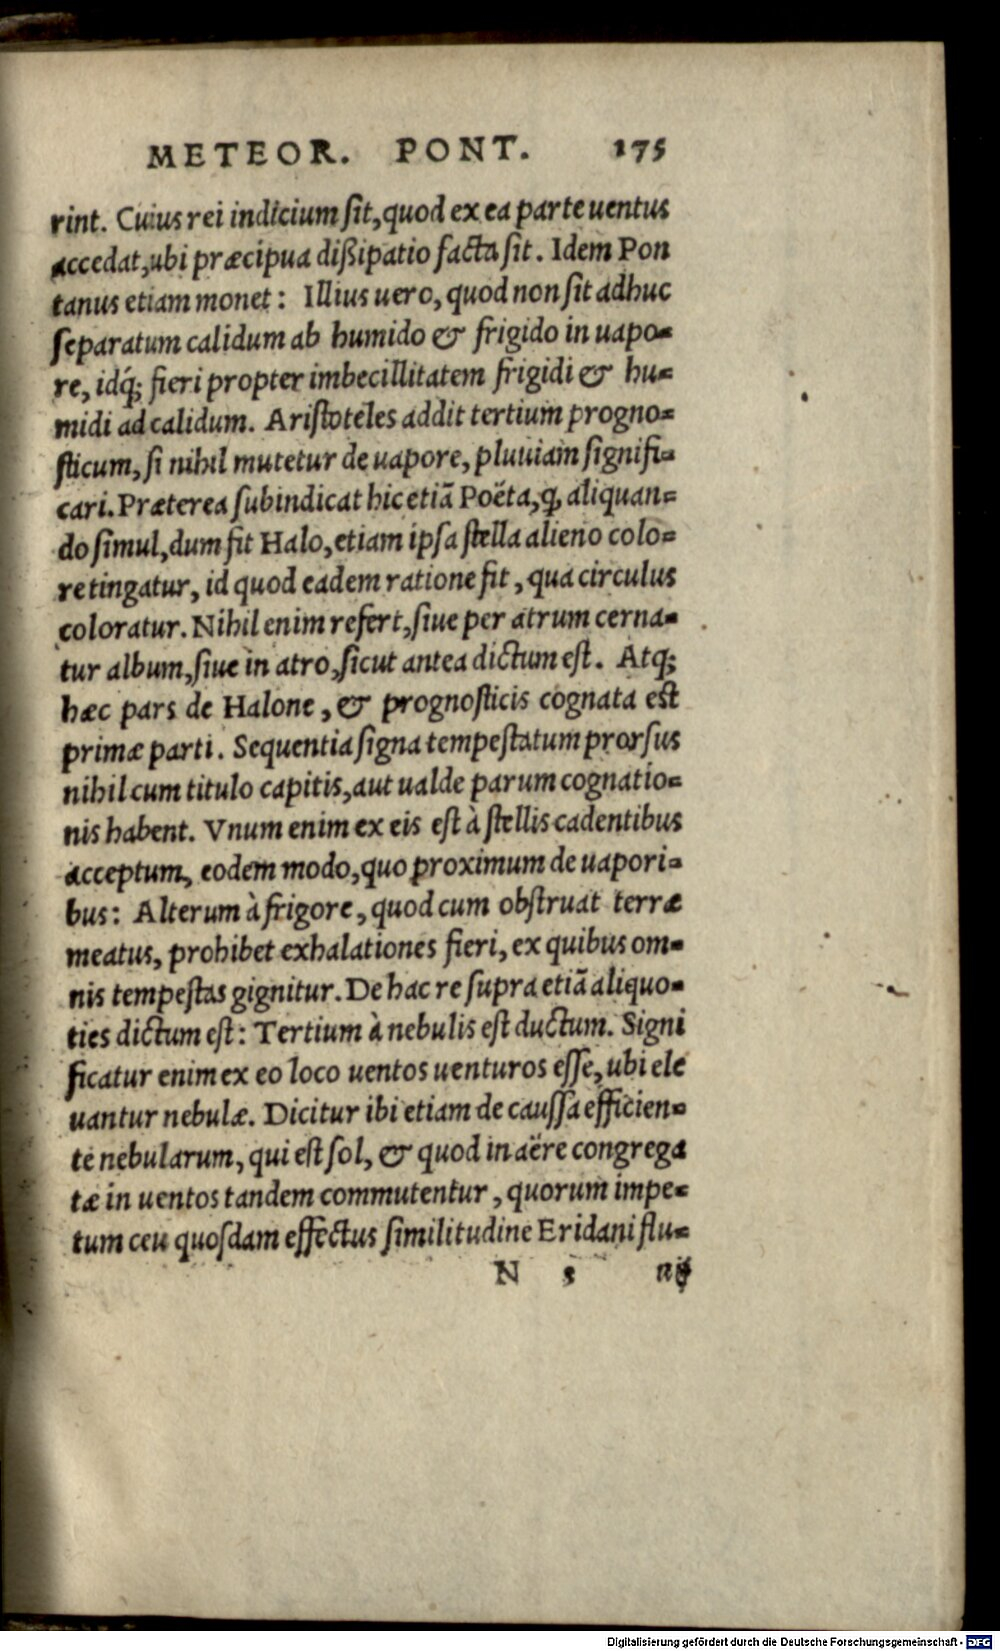 METEOR. PONT. 175
rint. Cuius rei indicium sit, quod ex ea parte uentus
accedat, ubi præcipua dißipatio facta sit. Idem Pon
tanus etiam monet: Illius uero, quod non sit adhuc
separatum calidum ab humido & frigido in uapo=
re, idq́; fieri propter imbecillitatem frigidi & hu=
midi ad calidum. Aristoteles addit tertium progno=
sticum, si nihil mutetur de uapore, pluuiam signifi=
cari. Præterea subindicat hic etiã Poëta, ꝙ aliquan=
do simul, dum fit Halo, etiam ipsa stella alieno colo=
re tingatur, id quod eadem ratione fit, qua circulus
coloratur. Nihil enim refert, siue per atrum cerna=
tur album, siue in atro, sicut antea dictum est. Atq;
hæc pars de Halone, & prognosticis cognata est
primæ parti. Sequentia signa tempestatum prorsus
nihil cum titulo capitis, aut ualde parum cognatio=
nis habent. Vnum enim ex eis est à stellis cadentibus
acceptum, eodem modo, quo proximum de uapori=
bus: Alterum à frigore, quod cum obstruat terræ
meatus, prohibet exhalationes fieri, ex quibus om=
nis tempestas gignitur. De hac re supra etiã aliquo=
ties dictum est: Tertium à nebulis est ductum. Signi
ficatur enim ex eo loco uentos uenturos esse, ubi ele
uantur nebulæ. Dicitur ibi etiam de caussa efficien=
te nebularum, qui est sol, & quod in aëre congrega
tæ in uentos tandem commutentur, quorum impe=
tum ceu quosdam effectus similitudine Eridani flu=
N 5 uij
Digitalisierung gefördert durch die Deutsche Forschungsgemeinschaft - DFG